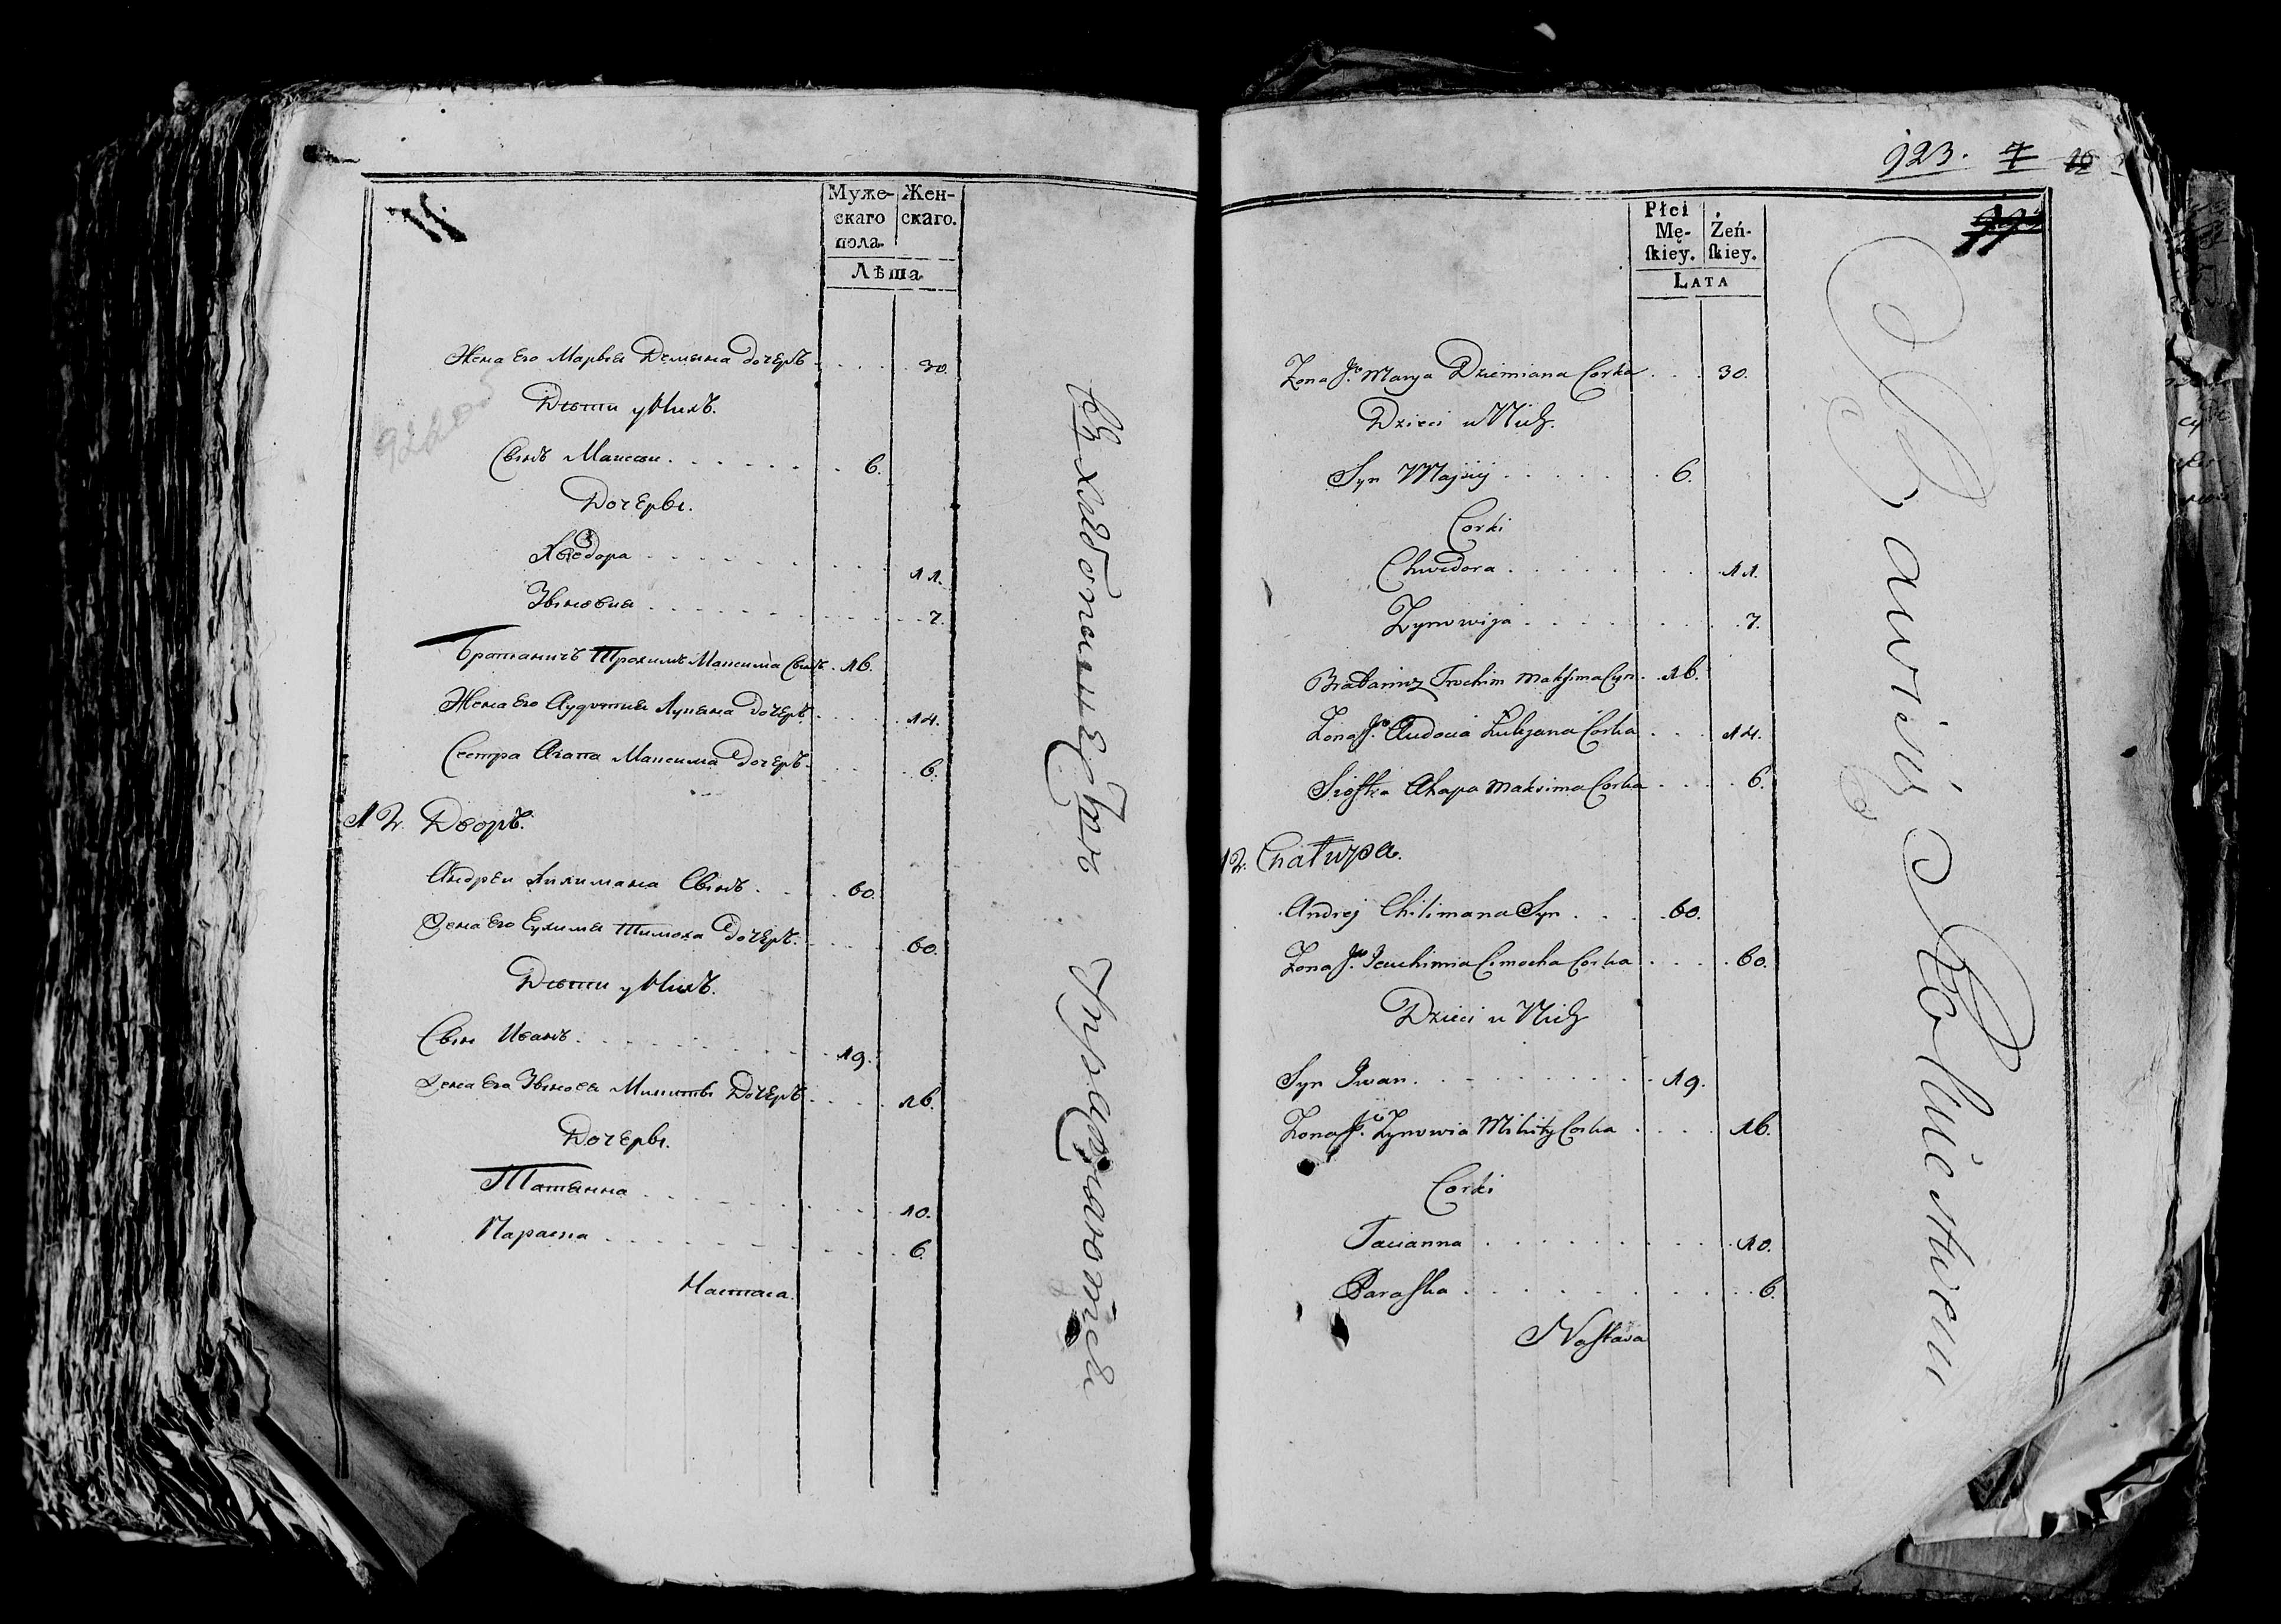 Муже-
скаго
пола.
Жен-
скаго.
Лѣта
Жена его Марья Демьяна дочерЪ . . . . 30.
Дѣти у НихЪ.
Сынъ Мойсей . . . . . . 6.
Дочеры.
Хведора . . . . . . 11.
Зыновия . . . . . . 7.
БратаничЪ Трохимъ Максима Сынъ . 16.
Жена его Аудотия Лукьяна дочерЪ . . . . 14.
Сестра Агапа Максима дочерЪ . . . . 6.
12. ДворЪ.
Андрей Хилимана Сынъ . . . 60.
Жена его Еухимия Тимоха дочерЪ . . . . 60.
Дѣти у НихЪ.
Сын ИванЪ . . . . . . 19.
Жена его Зыновия Микиты ДочерЪ . . . . 16.
Дочеры.
Татьянна . . . . . . 10.
Параска . . . . . . 6.
Настася.
въ хлѣбопашествѣ Упражняются
923. 7
Płci
Mę-
ſkiey.
Żeń-
ſkiey.
LATA
Zona Jo Marya Dziemiana Corka . . . 30.
Dzieci u Nich.
Syn Majsiej . . . . . . 6.
Corki
Chwedora . . . . . . 11.
Zynowija . . . . . . 7.
Bratanicz Trochim Makſima Syn . . 16.
Zona Jo Audocia Łukjana Corka . . . 14.
Siostra Ahapa Maksima Corka . . . . 6.
12. Chatupa.
Andrej Chilimana Syn . . . . 60.
Zona Jo Jeuchimia Cimocha Corka . . . . 60.
Dzieci u Nich
Syn Jwan . . . . . . 19.
Zona Jo Zynowia Mikity Corka . . . . 16.
Corki
Tacianna . . . . . . 10.
Paraſka . . . . . . 6.
Naſtasia
Bawiący się Rolnictwem